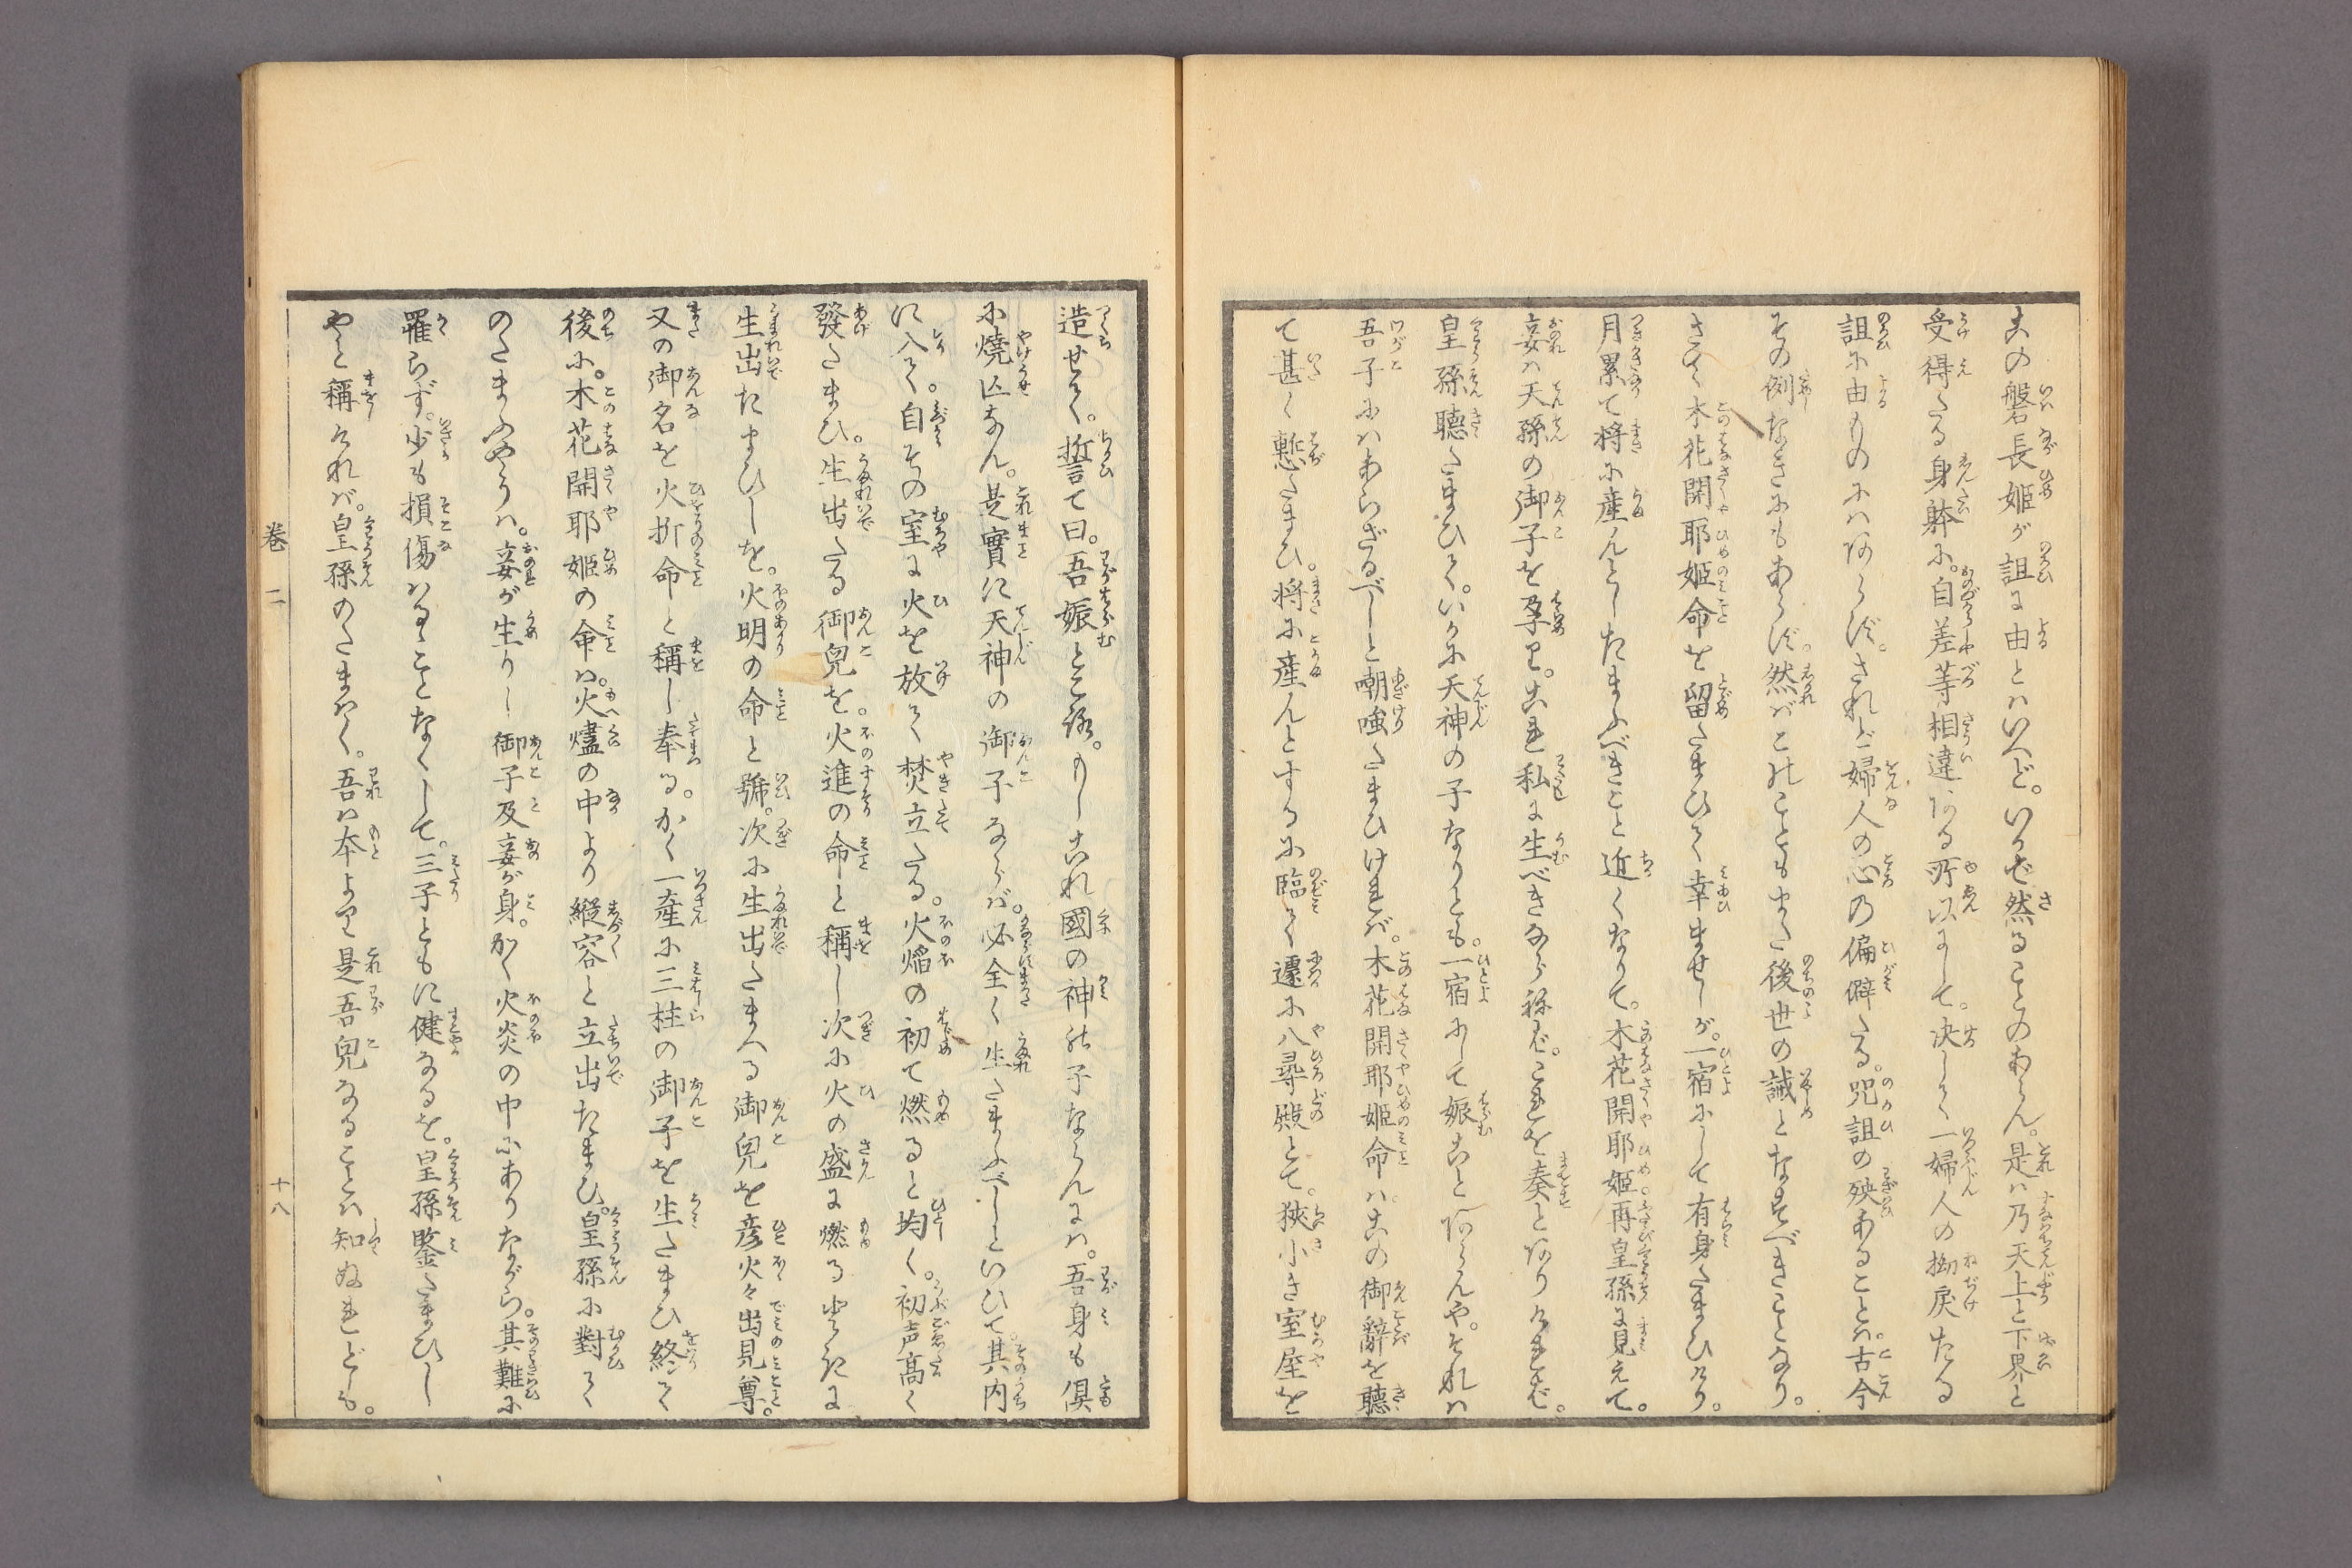 この磐長姫が詛に由とはいへど。いかで然ることのあらん。是は乃天上と下界と
受得たる身躰に。自差等相違ある所以にして。决して一婦人の拗戻たる
詛に由ものにはあらず。されど婦人の心の偏僻たる。咒詛の殃あることは。古今
その例なきにもあらず。然ばこのこともまた後世の誡となすべきことなり。
さて木花開耶姫命を留たまひて幸ませしが。一宿にして有身たまひけり。
月累て将に産んとしたまふべきこと近くなりて。木花開耶姫。再皇孫に見えて。
妾は天孫の御子を孕り。これ私に生べきならねば。これを奏とありければ。
皇孫聴たまひて。いかに天神の子なりとも。一宿にして娠ことあらんや。それは
吾子にはあらざるべしと嘲哂たまひければ。木花開耶姫命はこの御辭を聴
て甚く慙たまひ。将に産んとするに臨て遽に八尋殿とて。狹小き室屋を
造せて。誓て曰。吾娠ところ。もしこれ國の神の子ならんには。吾身も倶
に燒亾なん。是實に天神の御子ならば。必全く生たまふべしといひて。其内
に入て。自その室に火を放て焚立たる。火焔の初て燃ると均く。初声高く
發たまひ。生出たる御兒を。火進の命と稱し次に火の盛に燃るときに
生出たまひしを。火明の命と號。次に生出たまへる御兒を彦火々出見尊。
又の御名を火折命と稱し奉る。かく一産に三柱の御子を生たまひ終て
後に。木花開耶姫の命は。火燼の中より緞容と立出たまひ。皇孫に對て
のたまふやうは。妾が生りし御子及妾が身。かく火炎の中にありながら。其難に
罹らず。少も損傷はることなくして。三子ともに健なるを。皇孫鑒たまひし
やと稱ければ。皇孫のたまはく。吾は本より是吾兒なることは知ぬれども。
巻二
十八